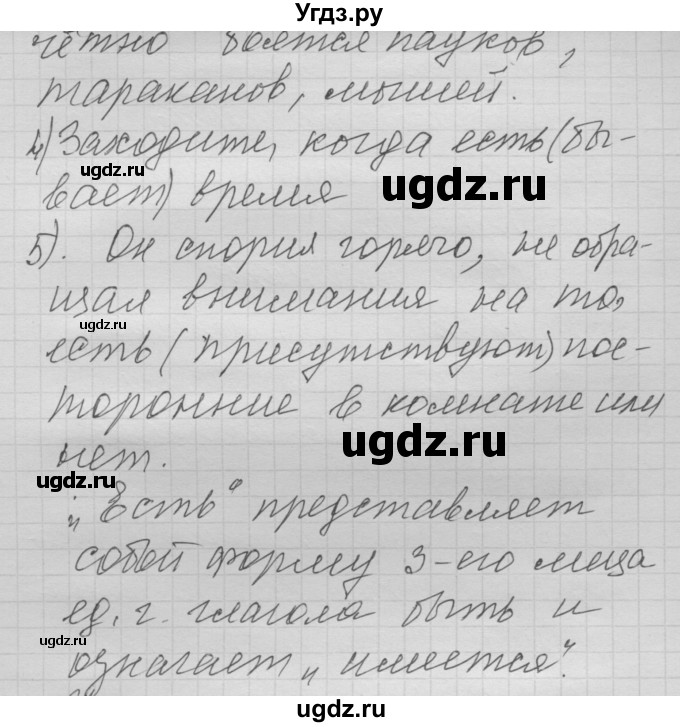 Угдз.ру
чётно боятся пауков,
тараканов, мышей.
4) Заходите, когда есть (бы-
вает) время
ugdz.ru
5). Он спорил горячо, не обра-
щал внимания на то,
ugdz.ru
есть (присутствуют) пос-
торонние в комнате или
ugdz.ru
нет.
ugdz.ru
„Есть“ представляет
собой форму 3-его лица
ед. ч. глагола быть и
ugdz.ru
означает „имеется“.
ugdz.ru